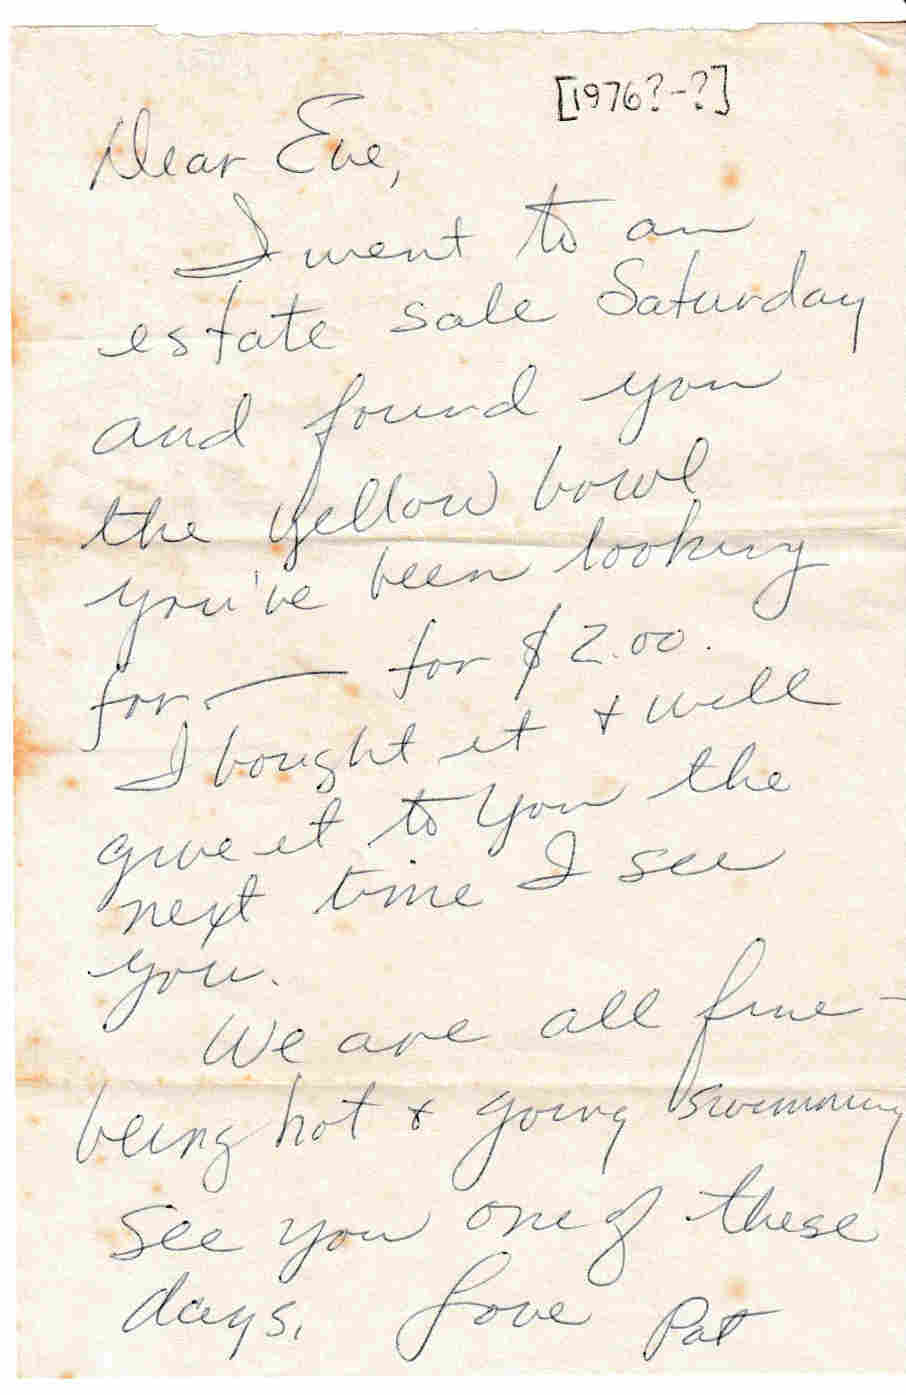 [1976?-?]
Dear Eve,
I went to an
estate sale Saturday
and found you
the yellow bowl
you've been looking
for — for $2.00.
I bought it + will
give it to you the
next time I see
you.
We are all fine -
being hot + going swimming
See you one of these
days. Love Pat